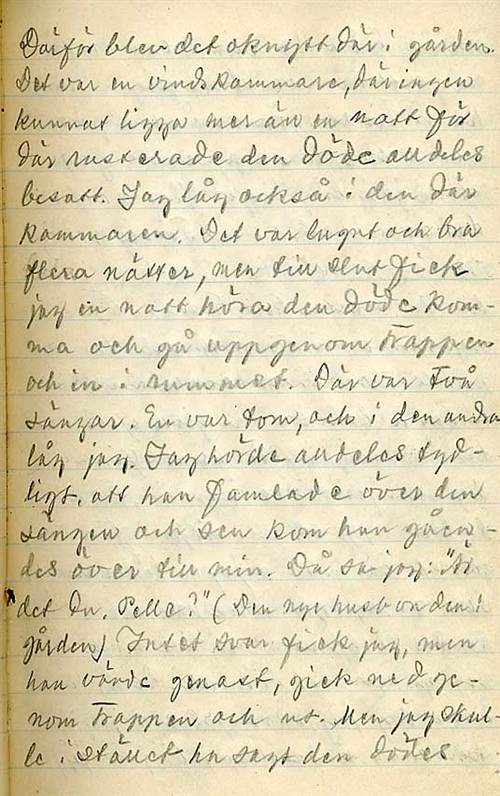 Därför blev det oknytt där i gården.
Det var en vindskammare, där ingen
kunnat ligga mer än en natt för
där rusterade den döde alldeles
besatt. Jag låg också i den där
kammaren. Det var lugnt och bra
flera nätter, men till slut fick
jag en natt höra den döde kom-
ma och gå uppgenom trappen
och in i rummet. Där var två
sängar. En var tom, och i den andra
låg jag. Jag hörde alldeles tyd-
ligt, att han famlade över den
sängen och sen kom han gåen-
des över till min. Då sa jag: "Är
det du, Pelle?" (Den nye husbonden i
gården) Intet svar fick jag, men
han vände genast, gick ned ge-
nom trappen och ut. Men jag skul-
le i stället ha sagt den dödes